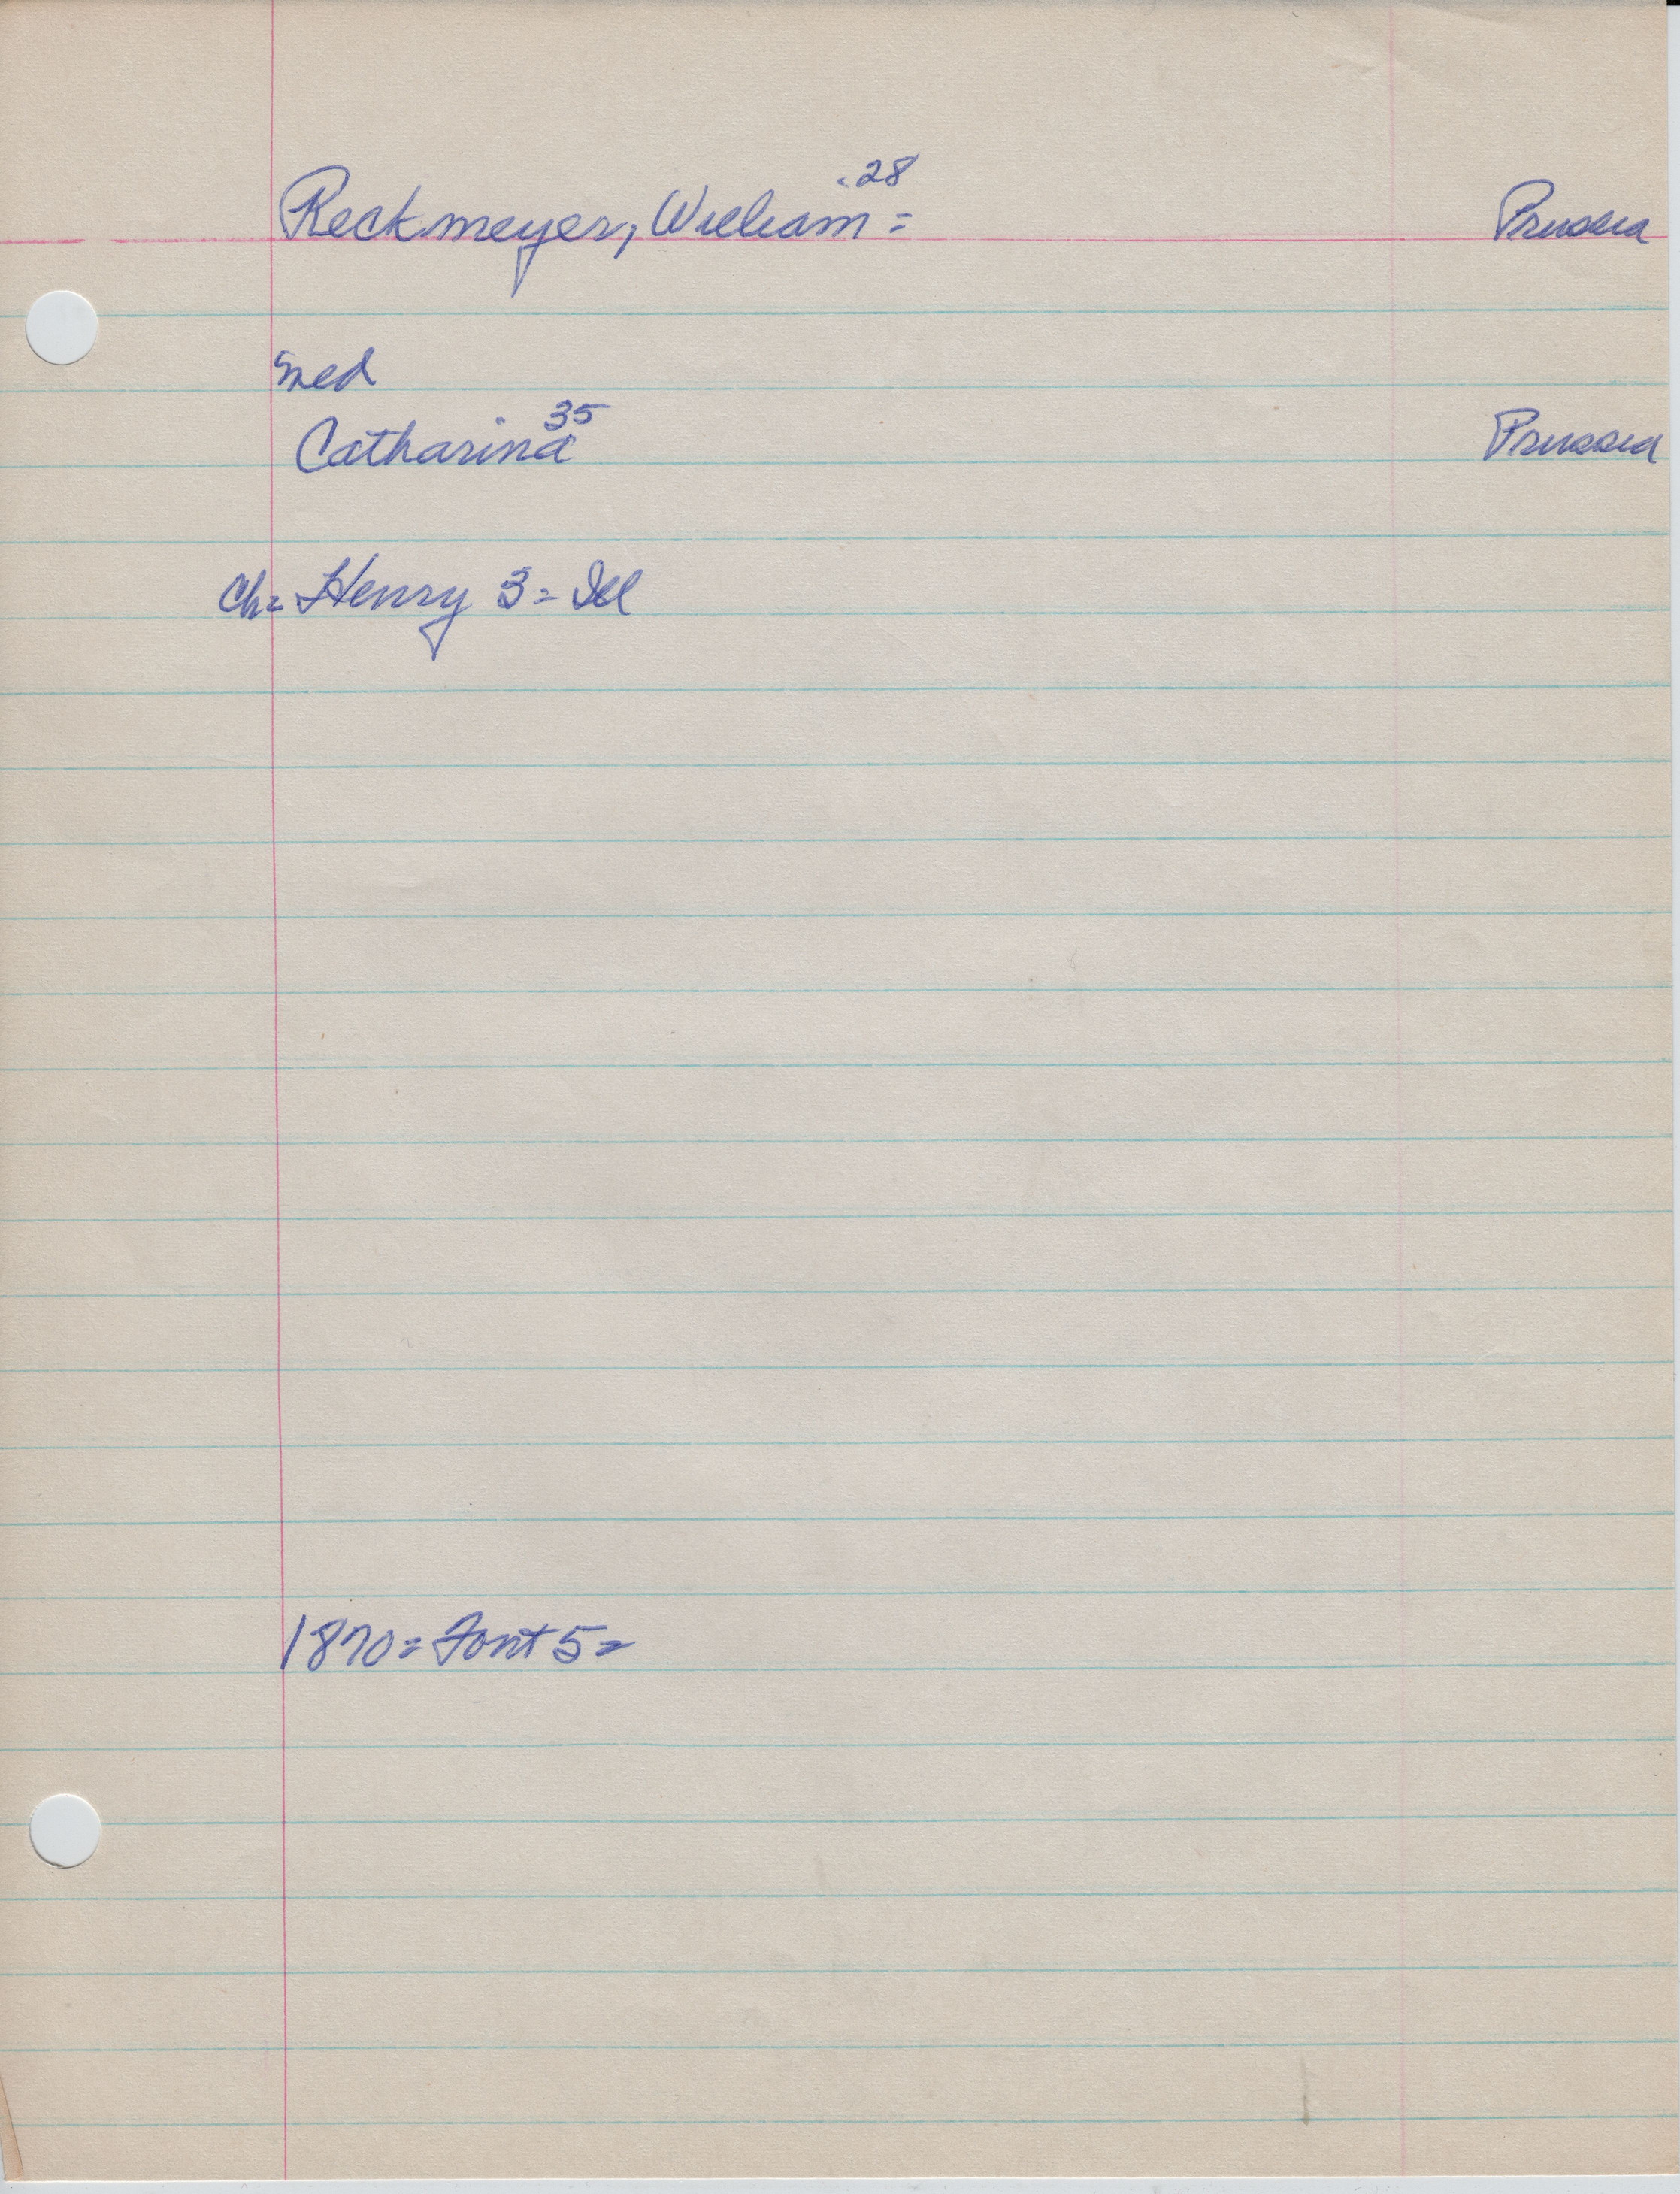 Reckmeyer, William = 28 Prussia
med
Catharina 35 Prussia
Ch = Henry 3 = Ill
1870 = Font 5 =